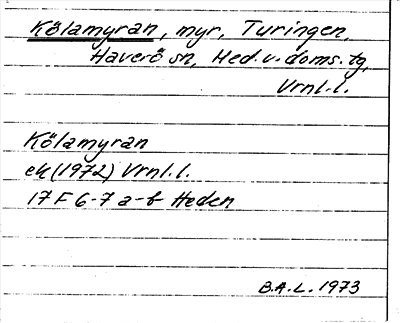 Kölamyran, myr, Turingen,
Haverö sn, Med.v.doms.tg,
Vrnl.l.
Kölamyran
ek (1972) Vrnl.l.
17 F 6-7 a-b Heden
B.A.L. 1973